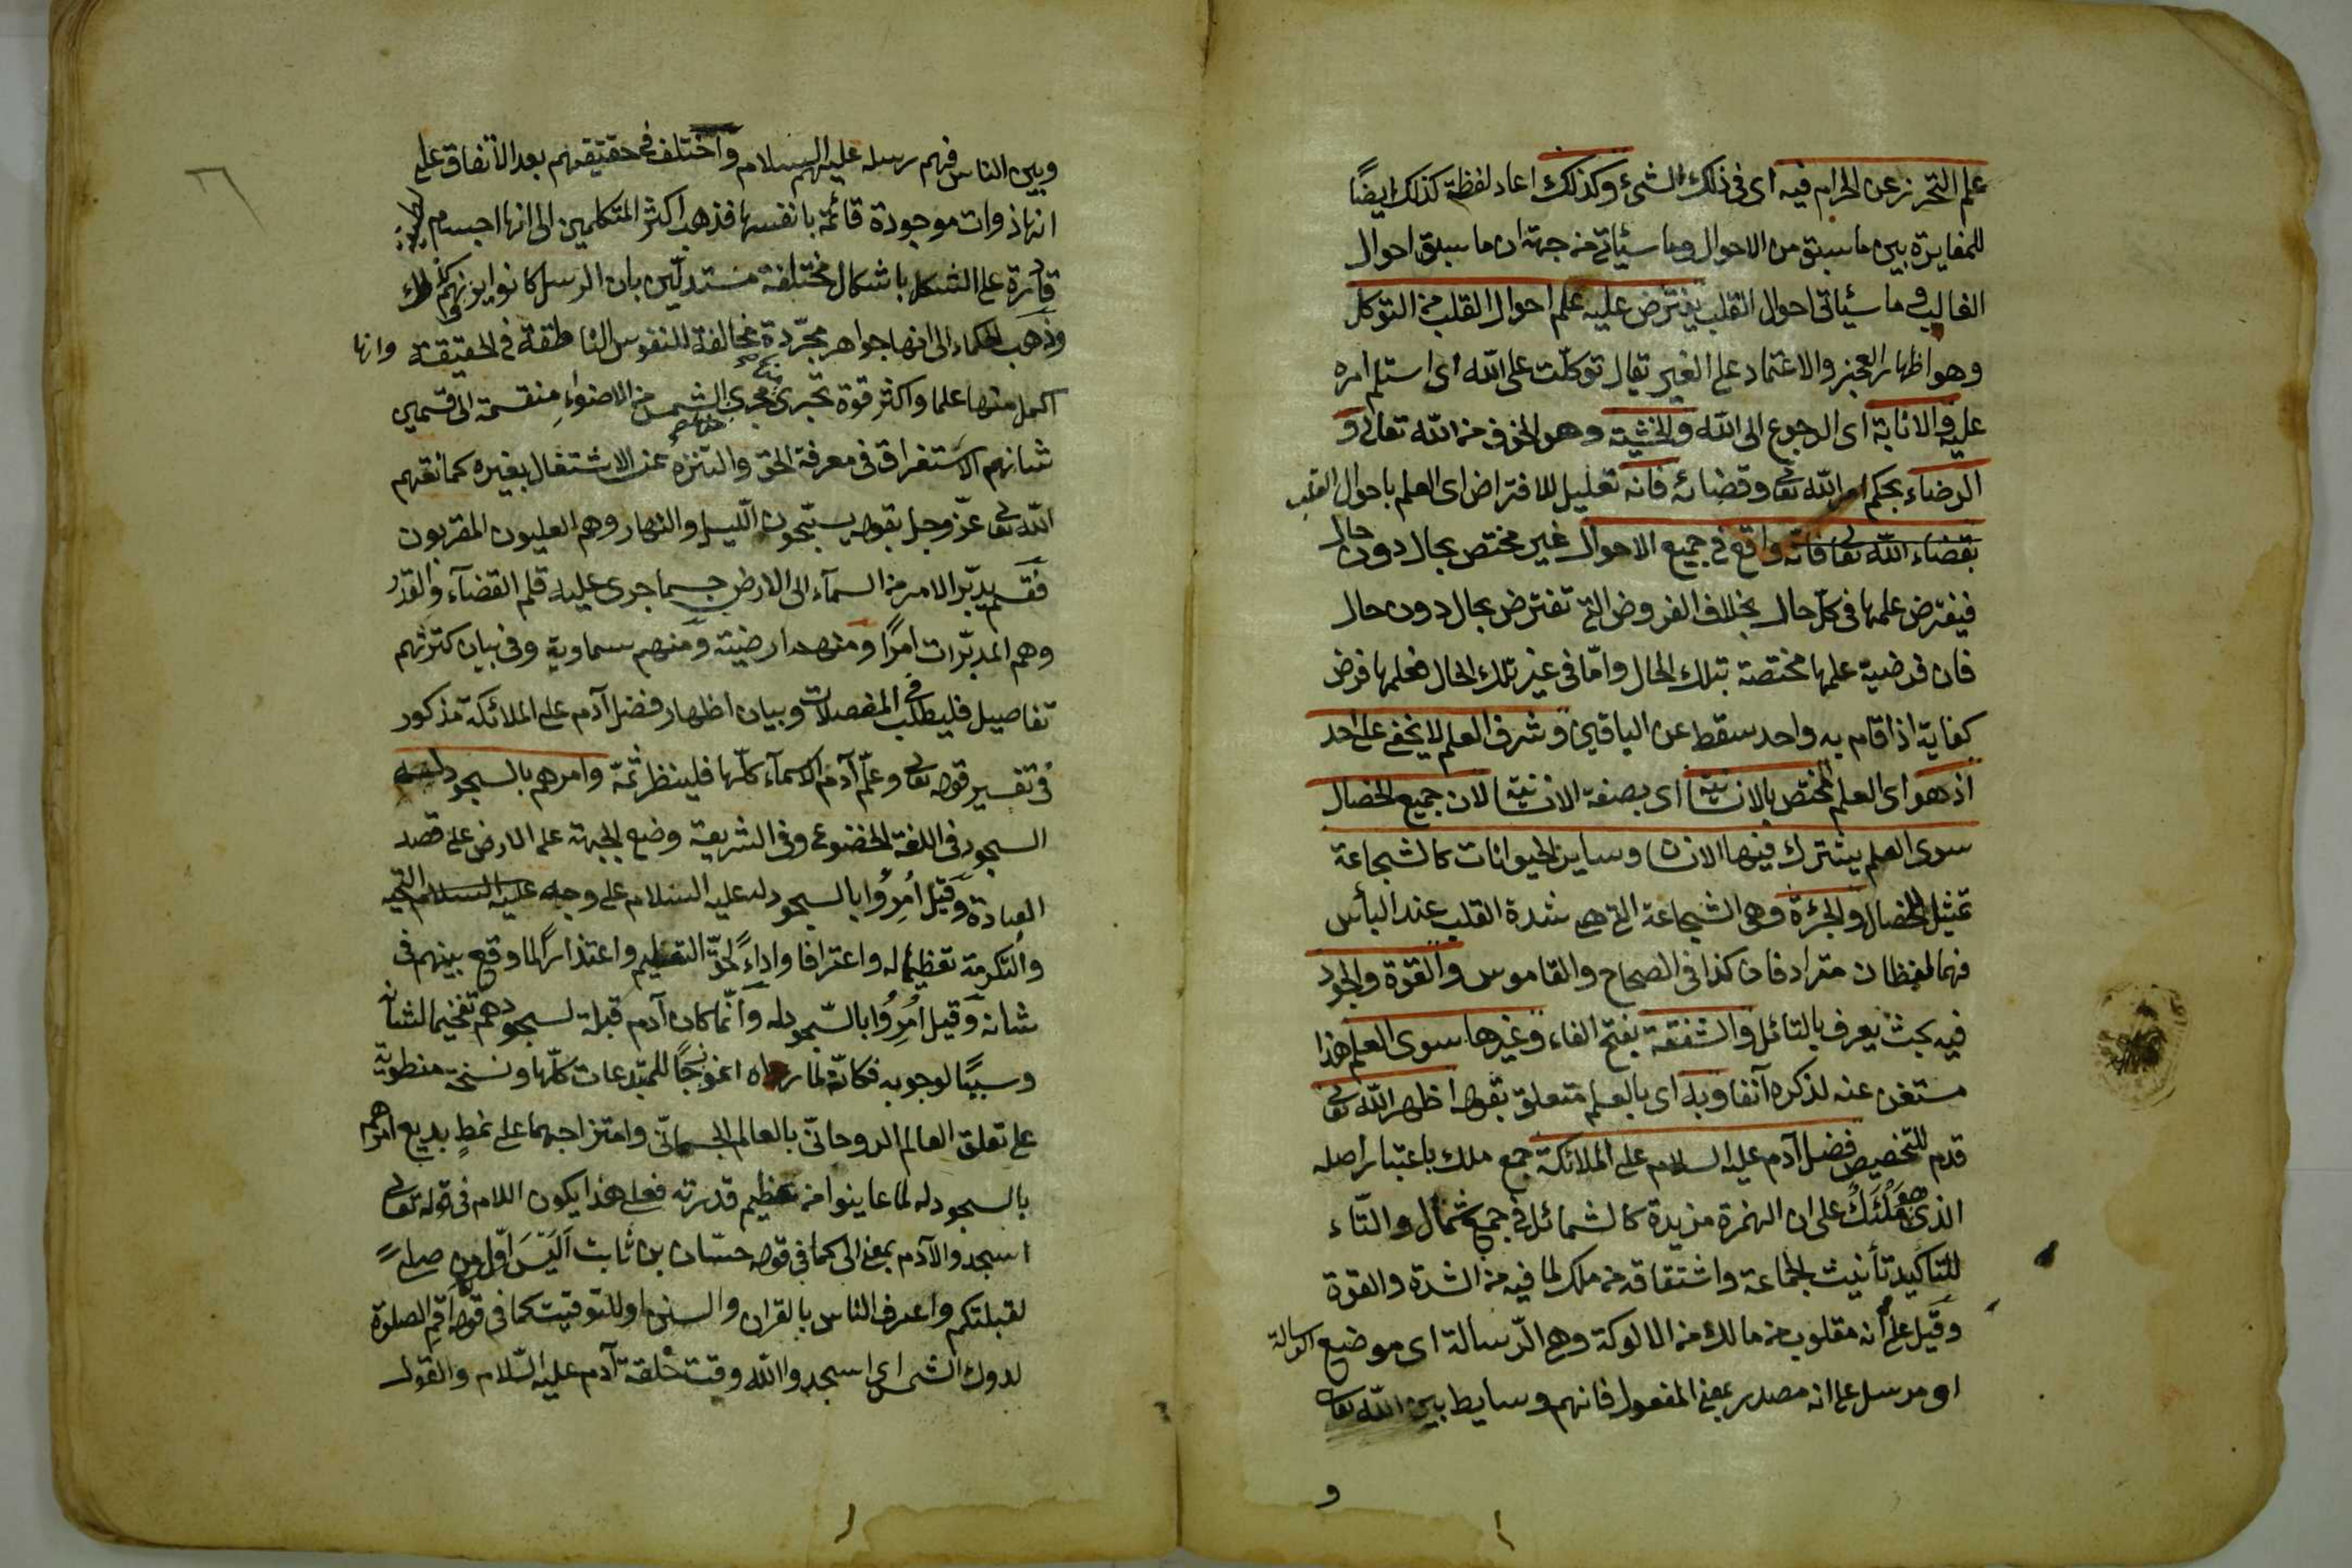 علم التحرز عن الحرام فيه اى فى ذلك الشئ وكذلك اعاد لفظة كذلك ايضًا
للمغايرة بين ما سبق من الاحوال وما سيأتى من جهة ان ما سبق احوال
الغالب وما سيأتى احوال القلب يفترض عليه علم احوال القلب من التوكل
وهو اظهار العجز والاعتماد على الغير تقال توكلت على الله اى استلم امره
عليه والانابة اى الرجوع الى الله والخشية وهو الخوف من الله تعالى و
الرضاء بحكم امر الله تعالى وقضائه فانه تعليل للافتراض اى العلم باحوال القلب
بقضاء الله تعالى فانه واقع فى جميع الاحوال غير مختص بحال دون حال
فيفترض علمها فى كل حال بخلاف الفروض التى تفترض بحال دون حال
فان فرضية علمها مختصة بتلك الحال واما فى غير تلك الحال فعلمها فرض
كفاية اذا قام به واحد سقط عن الباقين وشرف العلم لا يخفى على احد
اذ هو اى العلم المختص بالانسانية اى بصفة الانسانية لان جميع الخصال
سوى العلم يشترك فيها الانسان وساير الحيوانات كالشجاعة
تمثيل للخصال والجرءة وهى الشجاعة التى هى شدة القلب عند البأس
فهما لفظان مترادفان كذا فى الصحاح والقاموس والقوة والجود
فيه بحث يعرف بالتأمل والشفقة بفتح الفاء وغيرها سوى العلم هذا
مستغن عنه لذكره آنفا وبه اى بالعلم متعلق بقوله اظهر الله تعالى
قدم للتخصيص فضل آدم عليه السلام على الملائكة جمع ملك باعتبار اصله
الذى هو مَلْئَكٌ على ان الهمزة مزيدة كالشمائل فى جمع شمأل والتاء
للتأكيد تأنيث الجماعة واشتقاقه من ملك لما فيه من الشدة والقوة
وقيل على انه مقلوب من مالك من الالوكة وهى الرسالة اى موضع الرسالة
او مرسل على انه مصدر بمعنى المفعول فانهم وسايط بين الله تعالى
و
٦
وبين الناس فهم رسله عليهم السلام واختلف فى حقيقتهم بعد الاتفاق على
انها ذوات موجودة قائمة بانفسها فذهب اكثر المتكلمين الى انها اجسام
قادرة على الشكل باشكال مختلفة مستدلين بان الرسل كانوا يرونهم كذلك
وذهب الحكماء الى انها جواهر مجردة مخالفة للنفوس الناطقة فى الحقيقة وانها
اكمل منها علما واكثر قوة تجرى مجرى الشمس من الاضواء منقسمة الى قسمين
شانهم الاستغراق فى معرفة الحق والتنزه عن الاشتغال بغيره كما نعتهم
الله تعالى عز وجل بقوله يسبحون الليل والنهار وهم العليون المقربون
فقسم يدبر الامر من السمآء الى الارض حسبما جرى عليه قلم القضآء والقدر
وهم المدبرات امرًا ومنهم ارضية ومنهم سماوية وفى بيان كثرتهم
تفاصيل فليطلب فى المفصلات وبيان اظهار فضل آدم على الملائكة مذكور
فى تفسير قوله تعالى وعلم آدم الاسمآء كلها فلينظر ثمة وامرهم بالسجود له
السجود فى اللغة الخضوع وفى الشريعة وضع الجبهة على الارض على قصد
العبادة وقيل اُمِرُوا بالسجود له عليه السلام على وجه التحية
والتكرمة تعظيما له واعترافا واداءً لحق التعليم واعتذارًا لما وقع بينهم فى
شانه وقيل اُمِرُوا بالسجود له وانما كان آدم قبلة لسجودهم تفخيما لشانه
وسببًا لوجوبه فكانه لما براه انموذجًا للمبتدعات كلها ونسخة منطوية
على تعلق العالم الروحانى بالعالم الجسمانى وامتزاجهما على نمط بديع امرهم
بالسجود له لما عاينوا من عظيم قدرته فعلى هذا يكون اللام فى قوله تعالى
اسجدوا لآدم بمعنى الى كما فى قوله حسان بن ثابت اَلَيْسَ اوّل من صلى
لقبلتكم واعرف الناس بالقران والسنن او للتوقيت كما فى قوله اقم الصلوة
لدلوك الشمس اى اسجدوا لله وقت خلقة آدم عليه السلام والقول